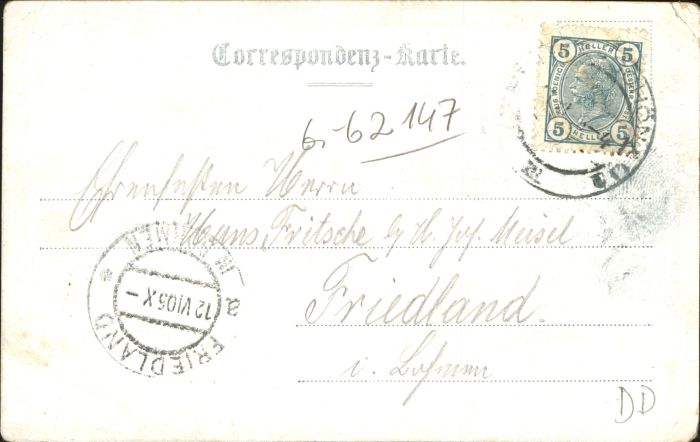 Correspondenz-Karte.
5 HELLER 5
5 HELLER 5
6-62 147
Ehrenfesten Herrn
Hans Fritsche by H. Jos. Meisel
Friedland
i. Bohmen
FRIEDLAND
12 VI 05 X-
a
DD